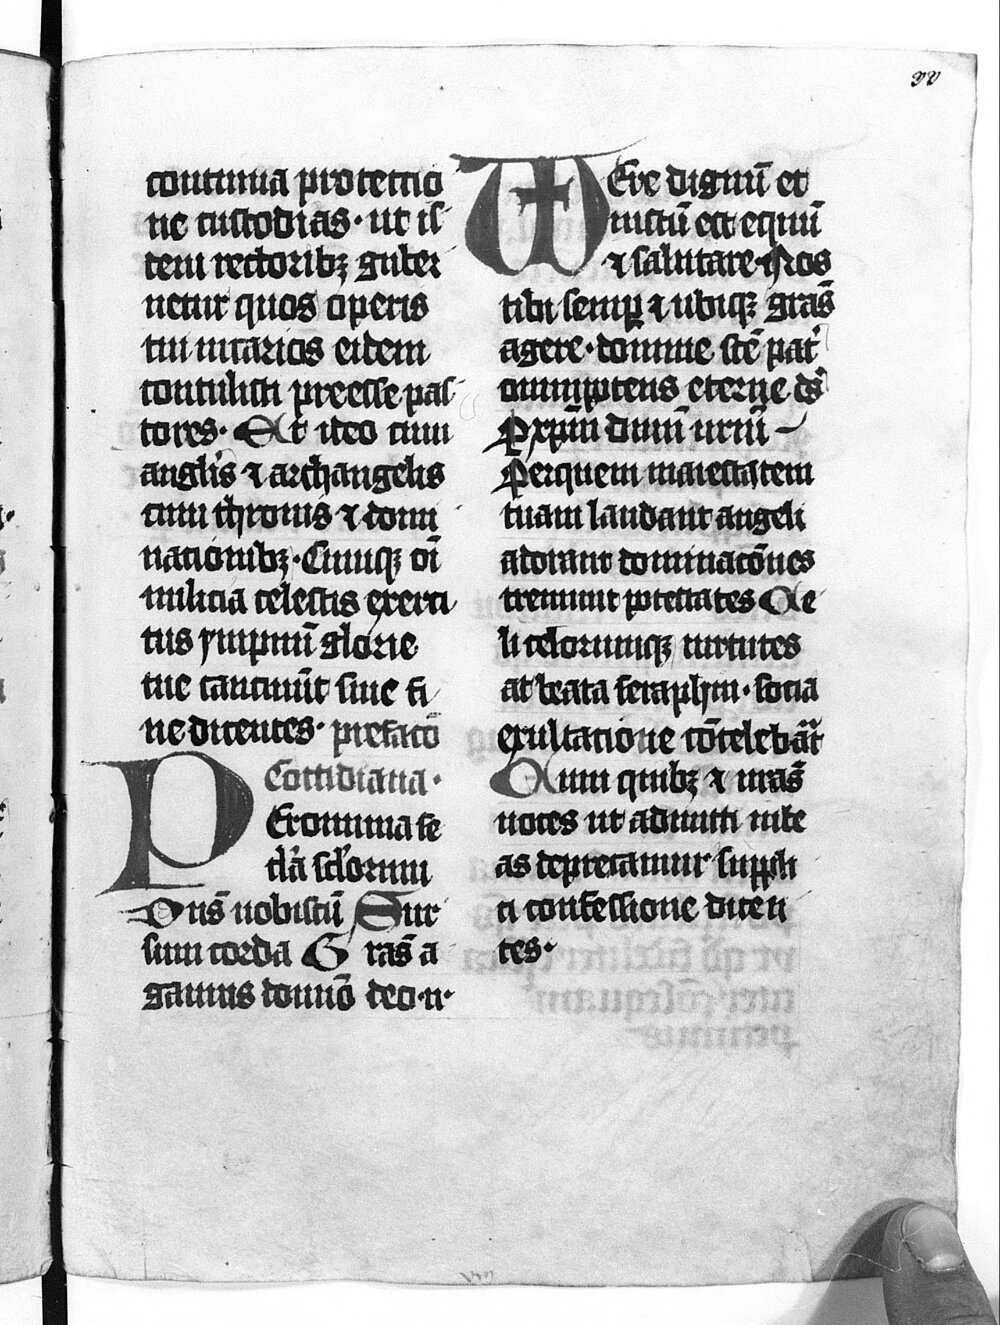 xv
continua protectio
ne custodias · ut iis
dem rectoribꝫ guber
netur quos operis
tui vicarios eidem
contulisti preesse pas
tores · Et ideo cum
angl̓is ⁊ archangelis
cum thronis ⁊ domi
nationibꝫ · Cumqꝫ oi̅
milicia celestis exerci
tus ympnu̅ glorie
tue canimu̅s sine fi
ne dicentes · prefatio̅
Cottidiana ·
Per omnia se
cl̓a scl̓orum
Dn̅s nobiscu̅ Sur
sum corda Gras̅ a
gamus domi̅o deo n̅ ·
Vere dignu̅ et
iustu̅ est equu̅
⁊ salutare · Nos
tibi semꝑ ⁊ ubiqꝫ gras̅
agere · domine sc̅e pat̓
omnipotens eterne ds̅
Pxpm̅ dnm̅ nrm̅
Per quem maiestatem
tuam laudant angeli
adorant dominaco̅nes
tremunt potestates Ce
li celorumqꝫ virtutes
ac beata seraphin · socia
exultatione co̅celebra̅t
Cum quibꝫ ⁊ nras̅
voces ut admitti iube
as deprecamur suppli
ci confessione dicen
tes ·